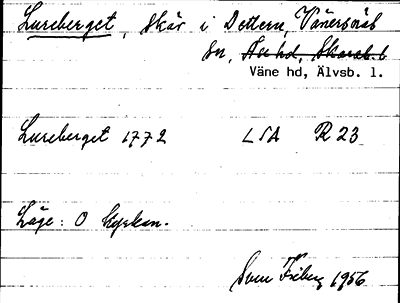 Lureberget, skär i Dettern, Vänersnäs
sn, Åse hd, Skarab. l
Väne hd, Älvsb. l.
Lureberget 1772 LSA R 23
Läge: O kyrkan.
Sven Friberg 1956